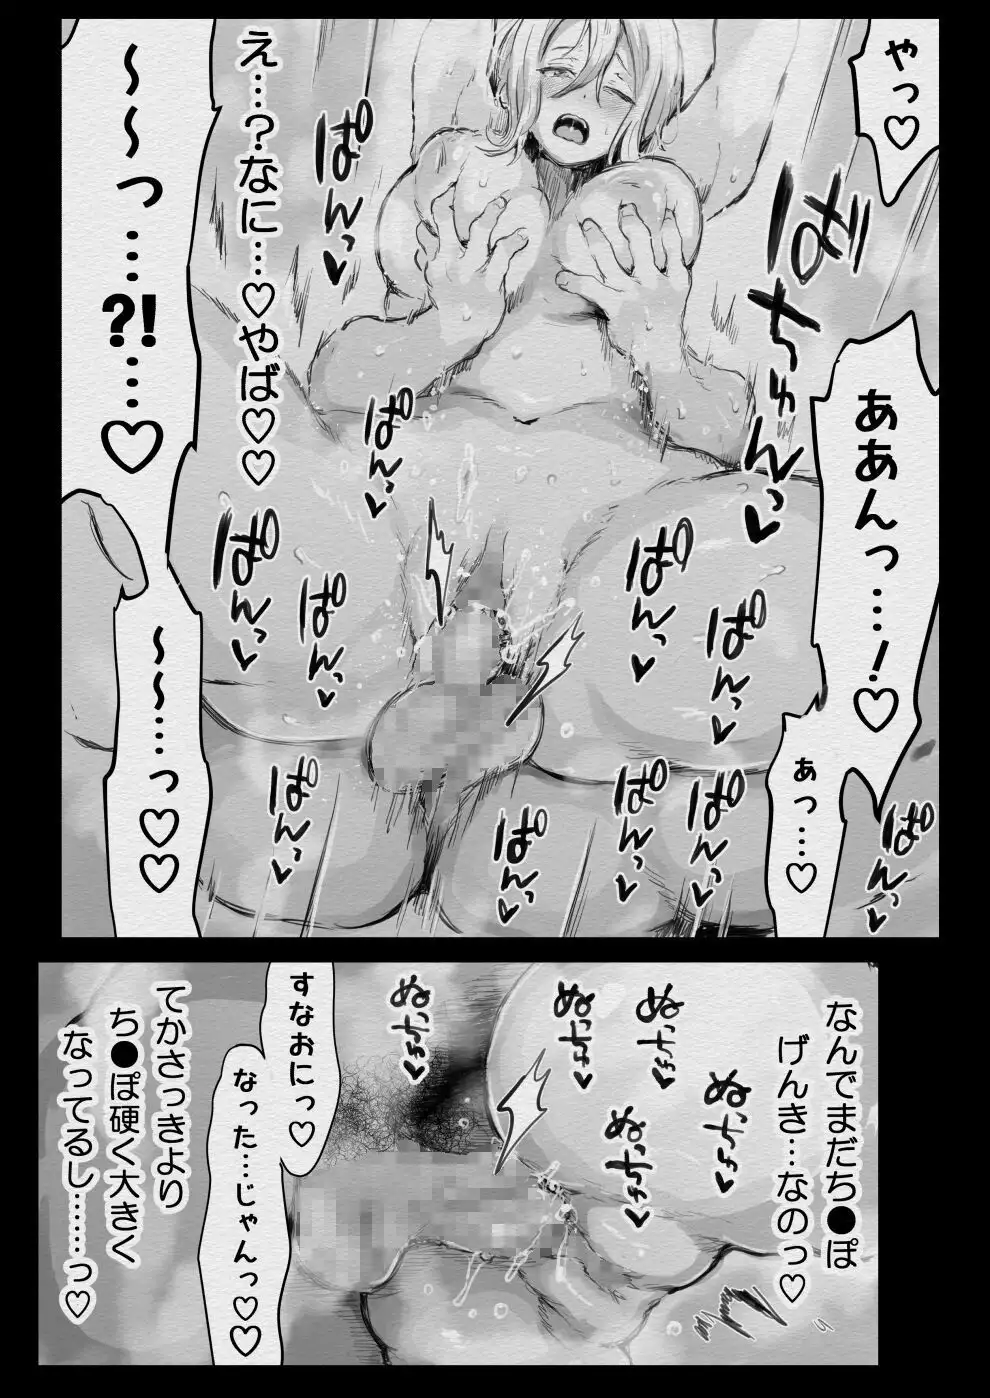 やっ♡
ばちゅんっ♥
ああんっ…！♡
あっ…♡
え…？なに…♡やば♡♡
～～っ…?!…♡
～～…っ♡♡
ぱんっ♥
ぱんっ♥
ぱんっ♥
ぱんっ♥
ぱんっ♥
ぱんっ♥
ぱんっ♥
ぱんっ♥
ぱんっ♥
ぱんっ♥
ぱんっ♥
なんでまだち●ぽ
げんき…なのっ♡
ぬちっ♥
ぬちっ♥
ぬちっ♥
ぬちっ♥
ぬちっ♥
すなおにっ♡
なった…じゃんっ♡♡
てかさっきより
ち●ぽ硬く大きく
なってるし……っ♡